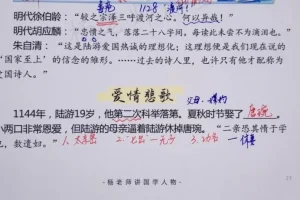 1128 渡河!
明代徐伯龄:"较之宗泽三呼渡河之心,何以异哉!
明代胡应麟:"忠愤之气,落落二十八字间。每读此未尝不为滴泪也。
朱自清:"这是陆游爱国热诚的理想化;这理想便是我们现在说的
"国家至上"的信念的雏形……过去的诗人里,也许只有他才配称为
爱国诗人。"
爱情悲歌
1144年,陆游19岁,他第二次科举落第。夏秋时节娶了唐琬。
小两口非常恩爱,但陆游的母亲逼着陆游休掉唐琬。"二亲恐其惰于学
也,数遣妇。"
杨老师讲国学人物